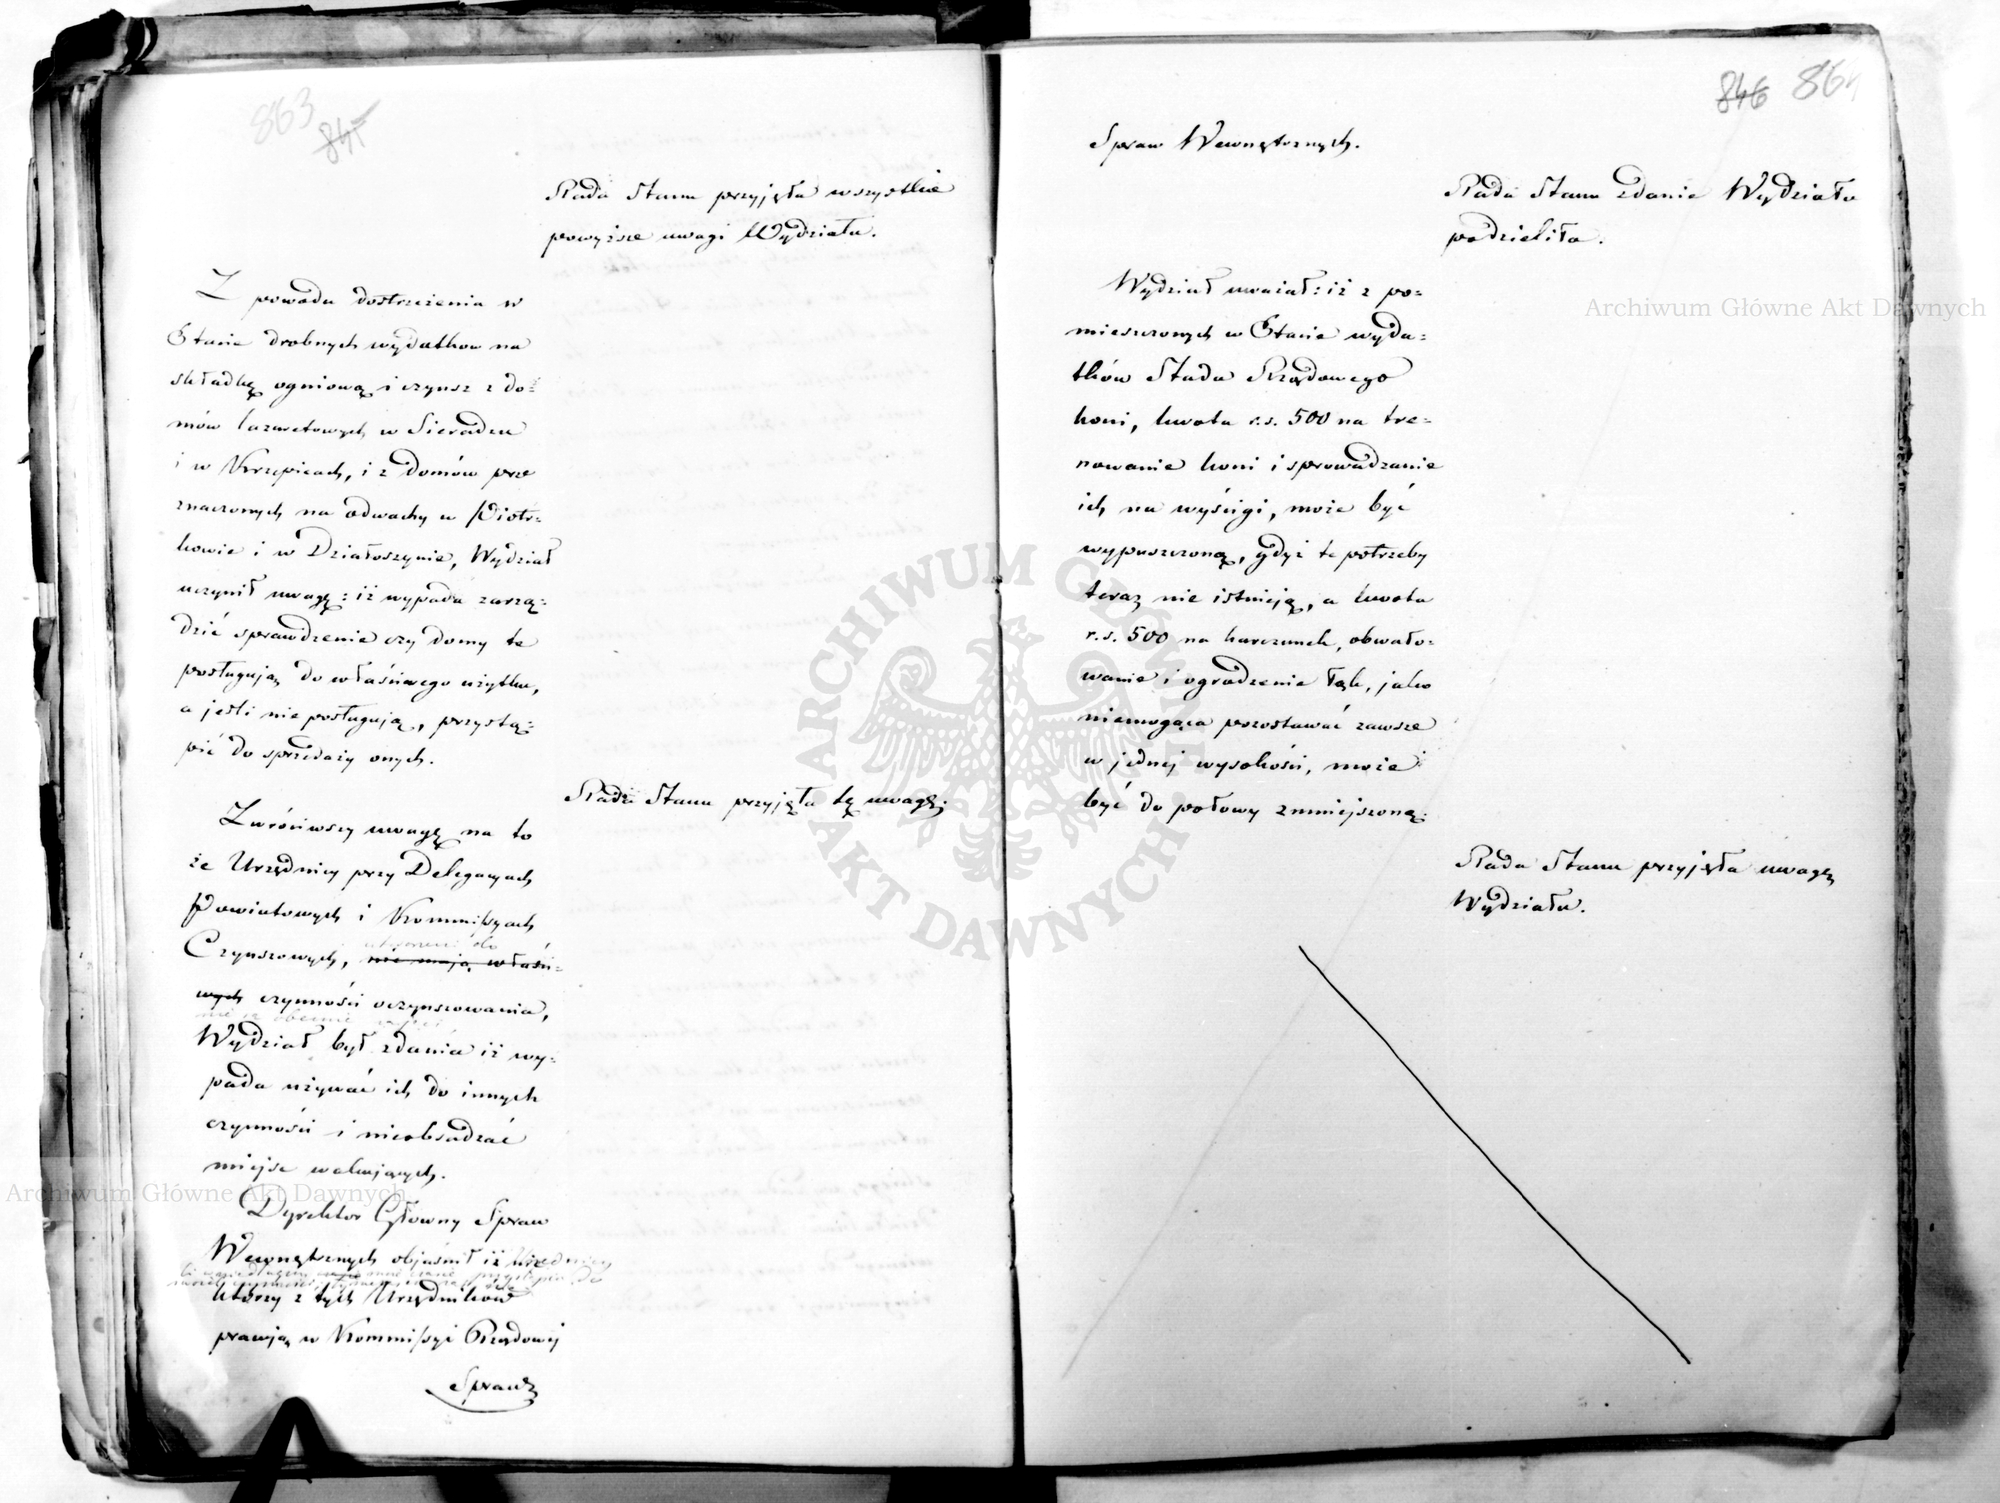 863
845
Rada Stanu przyjęła wszystkie
powyższe uwagi Wydziału.
Z powodu dostrzeżenia w
Etacie drobnych wydatkow na
składkę ogniową i czynsz z do=
mów lazaretowych w Sieradzu
i w Krzepicach, i z domów prze
znaczonych na odwachy w Piotr=
kowie i w Działoszynie, Wydział
uczynił uwagę: iż wypada zarzą=
dzić sprawdzenie czy domy te
posługują do właściwego użytku,
a jeśli nie posługują, przystą=
pić do sprzedaży onych.
Rada Stanu przyjęła tę uwagę.
Zwróciwszy uwagę na to
że Urzędnicy przy Delegacyach
Powiatowych i Kommissyach
utworzeni do
Czynszowych, nie mają właści=
wych czynności oczynszowania,
nie są obecnie
Wydział był zdania iż wy=
pada używać ich do innych
czynności i nieobsadzać
miejsc wakujących.
Dyrektor Główny Spraw
Wewnętrznych objaśnił iż Urzędnicy
którzy z tych Urzędników
pracują w Kommissyi Rządowej
Spraw
846 864
Spraw Wewnętrznych.
Rada Stanu zdanie Wydziału
podzieliła.
Wydział uważał: iż z po=
mieszczonych w Etacie wyda=
tków Stada Rządowego
koni, kwota r.s. 500 na tre=
nowanie koni i sprowadzanie
ich na wyścigi, może być
wypuszczoną, gdyż te potrzeby
teraz nie istnieją, a kwota
r.s. 500 na karczunek, obwało=
wanie i ogrodzenie łąk, jako
niemogąca pozostawać zawsze
w jednej wysokości, może
być do połowy zmniejszoną.
Rada Stanu przyjęła uwagę
Wydziału.
Archiwum Główne Akt Dawnych
Archiwum Główne Akt Dawnych
ARCHIWUM GŁÓWNE AKT DAWNYCH